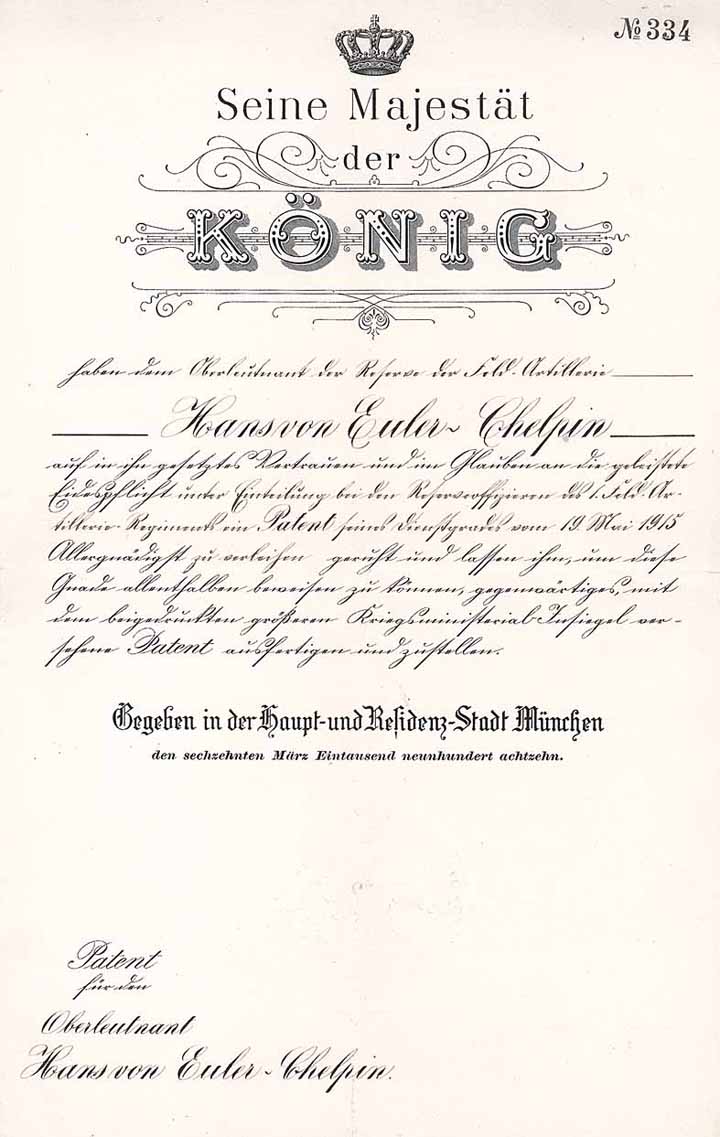 № 334
Seine Majestät
der
KÖNIG
haben dem Oberleutnant der Reserve der Feld-Artillerie
Hans von Euler-Chelpin
auf in ihn gesetztes Vertrauen und im Glauben an die geleistete
Eidespflicht unter Einteilung bei den Reserveoffizieren des 1. Feld-Ar-
tillerie-Regiments ein Patent seines Dienstgrades vom 19. Mai 1915
Allergnädigst zu verleihen geruht und lassen ihm, um diese
Gnade allenthalben beweisen zu können, gegenwärtiges, mit
dem beigedruckten größeren Kriegsministerial-Insiegel ver-
sehene Patent ausfertigen und zustellen.
Gegeben in der Haupt- und Residenz-Stadt München
den sechzehnten März Eintausend neunhundert achtzehn.
Patent
für den
Oberleutnant
Hans von Euler-Chelpin.